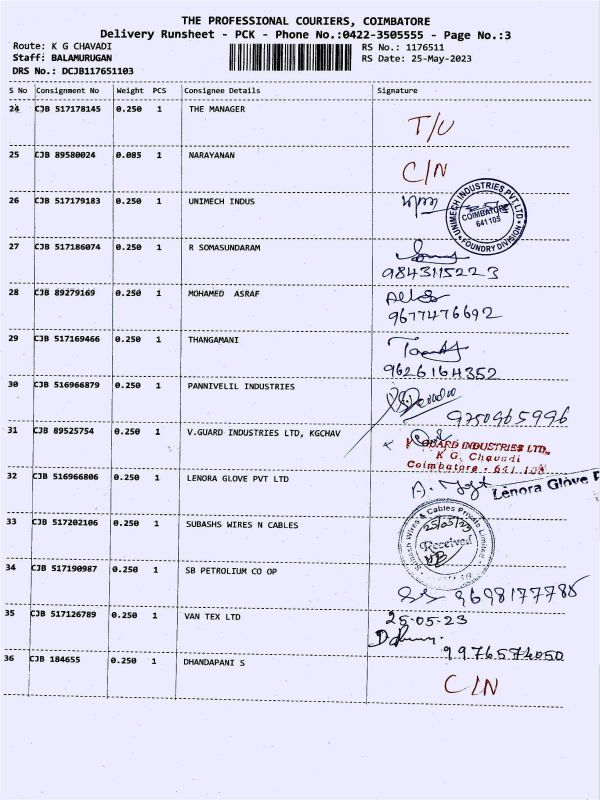 THE PROFESSIONAL COURIERS, COIMBATORE
Delivery Runsheet - PCK - Phone No.:0422-3505555 - Page No.:3
Route: K G CHAVADI RS No.: 1176511
Staff: BALAMURUGAN RS Date: 25-May-2023
DRS No.: DCJB117651103
S No Consignment No Weight PCS Consignee Details Signature
24 CJB 517178145 0.250 1 THE MANAGER T/U
25 CJB 89580024 0.085 1 NARAYANAN C/N
26 CJB 517179183 0.250 1 UNIMECH INDUS
UNIMECH INDUSTRIES PVT LTD
COIMBATORE
641 105
FOUNDRY DIVISION
27 CJB 517186074 0.250 1 R SOMASUNDARAM
9843115223
28 CJB 89279169 0.250 1 MOHAMED ASRAF
9677476692
29 CJB 517169466 0.250 1 THANGAMANI
9626164352
30 CJB 516966879 0.250 1 PANNIVELIL INDUSTRIES
9750965996
31 CJB 89525754 0.250 1 V.GUARD INDUSTRIES LTD, KGCHAV
GUARD INDUSTRIES LTD.,
K G. Chavadi
Coimbatore - 641
32 CJB 516966806 0.250 1 LENORA GLOVE PVT LTD
Lenora Glove P
33 CJB 517202106 0.250 1 SUBASHS WIRES N CABLES
Subash Wires & Cables Private Limited
25/05/23
Received
34 CJB 517190987 0.250 1 SB PETROLIUM CO OP
9698177785
35 CJB 517126789 0.250 1 VAN TEX LTD
25-05-23
9976574050
36 CJB 184655 0.250 1 DHANDAPANI S C/N